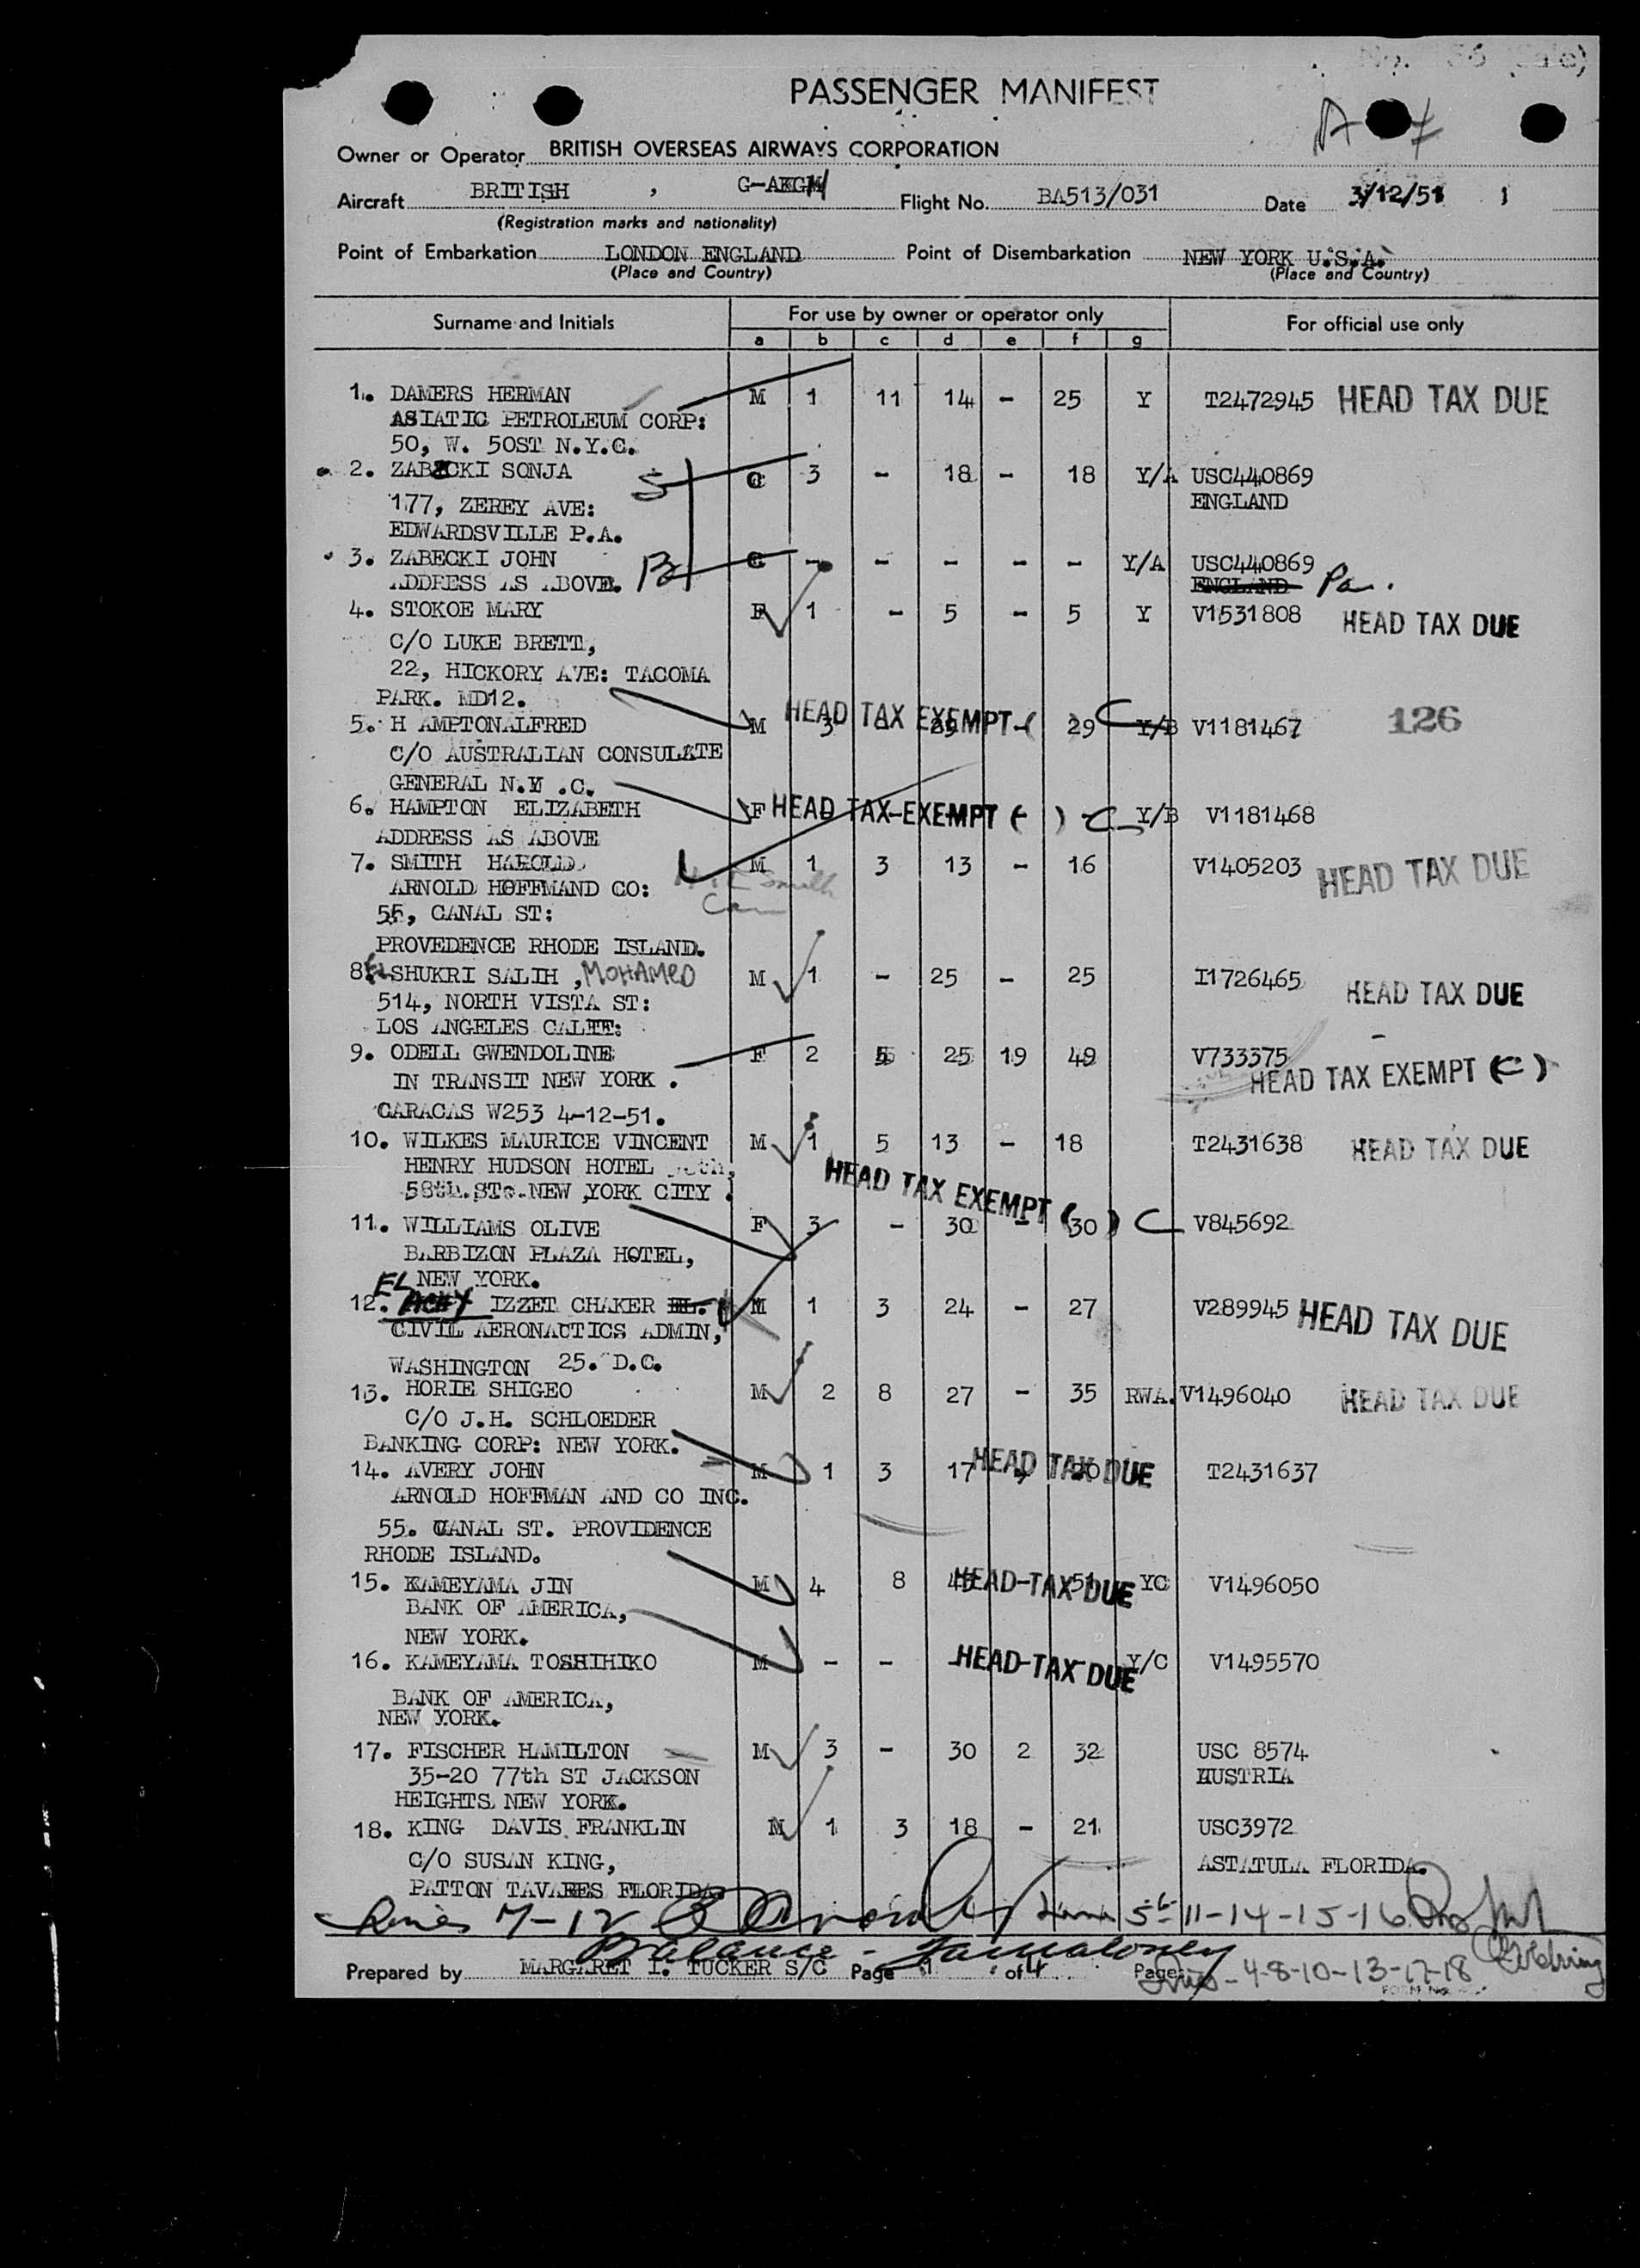 PASSENGER MANIFEST
Owner or Operator BRITISH OVERSEAS AIRWAYS CORPORATION
Aircraft BRITISH , G-AKGM Flight No. BA513/031 Date 3/12/51 1
(Registration marks and nationality)
Point of Embarkation LONDON ENGLAND Point of Disembarkation NEW YORK U.S.A.
(Place and Country) (Place and Country)
Surname and Initials For use by owner or operator only For official use only
a b c d e f g
1. DAMERS HERMAN M 1 11 14 - 25 Y T2472945 HEAD TAX DUE
ASIATIC PETROLEUM CORP:
50, W. 50ST N.Y.C.
2. ZABECKI SONJA S 3 - 18 - 18 Y/A USC440869
177, ZEREY AVE: ENGLAND
EDWARDSVILLE P.A.
3. ZABECKI JOHN B - - - - - Y/A USC440869
ADDRESS AS ABOVE. ENGLAND Pa.
4. STOKOE MARY F 1 - 5 - 5 Y V1531808 HEAD TAX DUE
C/O LUKE BRETT,
22, HICKORY AVE: TACOMA
PARK. MD12.
5. H AMPTONALFRED M 3 HEAD TAX EXEMPT ( 29 C Y/B V1181467 126
C/O AUSTRALIAN CONSULATE
GENERAL N.Y .C.
6. HAMPTON ELIZABETH F HEAD TAX EXEMPT ( ) C Y/B V1181468
ADDRESS AS ABOVE
7. SMITH HAROLD M 1 3 13 - 16 V1405203 HEAD TAX DUE
ARNOLD HOFFMAND CO:
55, CANAL ST:
PROVEDENCE RHODE ISLAND.
8. EL SHUKRI SALIH , MOHAMED M 1 - 25 - 25 I1726465 HEAD TAX DUE
514, NORTH VISTA ST:
LOS ANGELES CALIF:
9. ODELL GWENDOLINE F 2 5 25 19 49 V733375
IN TRANSIT NEW YORK . HEAD TAX EXEMPT (C)
CARACAS W253 4-12-51.
10. WILKES MAURICE VINCENT M 1 5 13 - 18 T2431638 HEAD TAX DUE
HENRY HUDSON HOTEL
58th. ST. NEW YORK CITY . HEAD TAX EXEMPT ( ) C
11. WILLIAMS OLIVE F 3 - 30 - 30 V845692
BARBIZON PLAZA HOTEL,
NEW YORK.
12. EL IZZET CHAKER EL. M 1 3 24 - 27 V289945 HEAD TAX DUE
CIVIL AERONAUTICS ADMIN,
WASHINGTON 25. D.C.
13. HORIE SHIGEO M 2 8 27 - 35 RWA. V1496040 HEAD TAX DUE
C/O J.H. SCHLOEDER
BANKING CORP: NEW YORK.
14. AVERY JOHN M 1 3 17 HEAD TAX DUE T2431637
ARNOLD HOFFMAN AND CO INC.
55. CANAL ST. PROVIDENCE
RHODE ISLAND.
15. KAMEYAMA JIN M 4 8 HEAD TAX DUE 51 YC V1496050
BANK OF AMERICA,
NEW YORK.
16. KAMEYAMA TOSHIHIKO M - - HEAD TAX DUE Y/C V1495570
BANK OF AMERICA,
NEW YORK.
17. FISCHER HAMILTON M 3 - 30 2 32 USC 8574
35-20 77th ST JACKSON AUSTRIA
HEIGHTS NEW YORK.
18. KING DAVIS FRANKLIN M 1 3 18 - 21 USC3972
C/O SUSAN KING, ASTATULA FLORIDA.
PATTON TAVARES FLORIDA.
Lines 7-12 11-14-15-16
Balance -
Prepared by MARGARET I. TUCKER S/C Page 1 of 4 Pages
Lines - 4-8-10-13-17-18